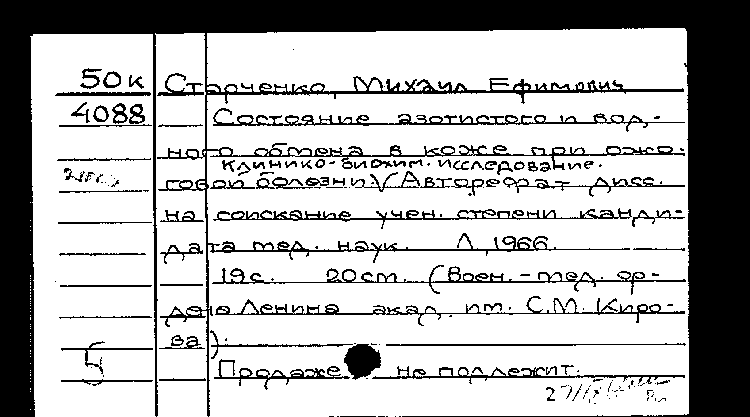 50к Старченко, Михаил Ефимович
4088 Состояние азотистого и вод-
ного обмена в коже при ожо-
клинико-биохим. исследование.
говой болезни\/(Автореферат дисс.
на соискание учен. степени канди-
дата мед. наук. Л., 1966.
19с. 20см. (Воен.-мед. ор-
дена Ленина акад. им. С.М. Киро-
ва).
5
Продаже не подлежит.